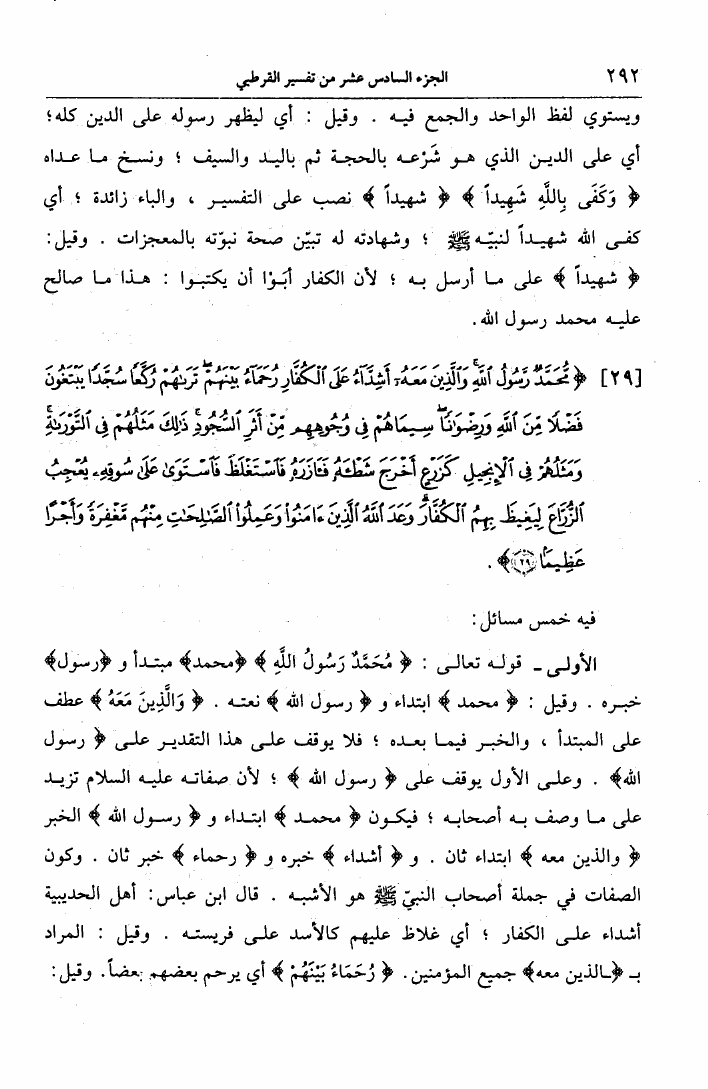 ٢٩٢ الجزء السادس عشر من تفسير القرطبي
ويستوي لفظ الواحد والجمع فيه . وقيل : أي ليظهر رسوله على الدين كله؛
أي على الدين الذي هو شَرْعه بالحجة ثم باليد والسيف ؛ ونسخ ما عداه
﴿ وَكَفَى بِاللَّهِ شَهِيداً ﴾ ﴿ شهيداً ﴾ نصب على التفسير ، والباء زائدة ؛ أي
كفى الله شهيداً لنبيّه ﷺ ؛ وشهادته له تبيّن صحة نبوّته بالمعجزات . وقيل:
﴿ شهيداً ﴾ على ما أرسل به ؛ لأن الكفار أبَوْا أن يكتبوا : هذا ما صالح
عليه محمد رسول الله.
[٢٩] ﴿ مُّحَمَّدٌ رَّسُولُ ٱللَّهِ وَٱلَّذِينَ مَعَهُۥٓ أَشِدَّآءُ عَلَى ٱلْكُفَّارِ رُحَمَآءُ بَيْنَهُمْ تَرَىٰهُمْ رُكَّعًا سُجَّدًا يَبْتَغُونَ
فَضْلًا مِّنَ ٱللَّهِ وَرِضْوَٰنًا سِيمَاهُمْ فِى وُجُوهِهِم مِّنْ أَثَرِ ٱلسُّجُودِ ذَٰلِكَ مَثَلُهُمْ فِى ٱلتَّوْرَىٰةِ
وَمَثَلُهُمْ فِى ٱلْإِنجِيلِ كَزَرْعٍ أَخْرَجَ شَطْـَٔهُۥ فَـَٔازَرَهُۥ فَٱسْتَغْلَظَ فَٱسْتَوَىٰ عَلَىٰ سُوقِهِۦ يُعْجِبُ
ٱلزُّرَّاعَ لِيَغِيظَ بِهِمُ ٱلْكُفَّارَ وَعَدَ ٱللَّهُ ٱلَّذِينَ ءَامَنُوا۟ وَعَمِلُوا۟ ٱلصَّٰلِحَٰتِ مِنْهُم مَّغْفِرَةً وَأَجْرًا
عَظِيمًا ٢٩ ﴾ .
فيه خمس مسائل:
الأولى ـ قوله تعالى : ﴿ مُحَمَّدٌ رَسُولُ اللَّهِ ﴾ ﴿محمد﴾ مبتدأ و ﴿رسول﴾
خبره . وقيل : ﴿ محمد ﴾ ابتداء و ﴿ رسول الله ﴾ نعته . ﴿ وَالَّذِينَ مَعَهُ ﴾ عطف
على المبتدأ ، والخبر فيما بعده ؛ فلا يوقف على هذا التقدير على ﴿ رسول
الله﴾ . وعلى الأول يوقف على ﴿ رسول الله ﴾ ؛ لأن صفاته عليه السلام تزيد
على ما وصف به أصحابه ؛ فيكون ﴿ محمد ﴾ ابتداء و ﴿ رسول الله ﴾ الخبر
﴿ والذين معه ﴾ ابتداء ثان . و ﴿ أشداء ﴾ خبره و ﴿ رحماء ﴾ خبر ثان . وكون
الصفات في جملة أصحاب النبيّ ﷺ هو الأشبه . قال ابن عباس: أهل الحديبية
أشداء على الكفار ؛ أي غلاظ عليهم كالأسد على فريسته . وقيل : المراد
بـ ﴿ـالذين معه﴾ جميع المؤمنين. ﴿ رُحَمَاءُ بَيْنَهُمْ ﴾ أي يرحم بعضهم بعضاً. وقيل: